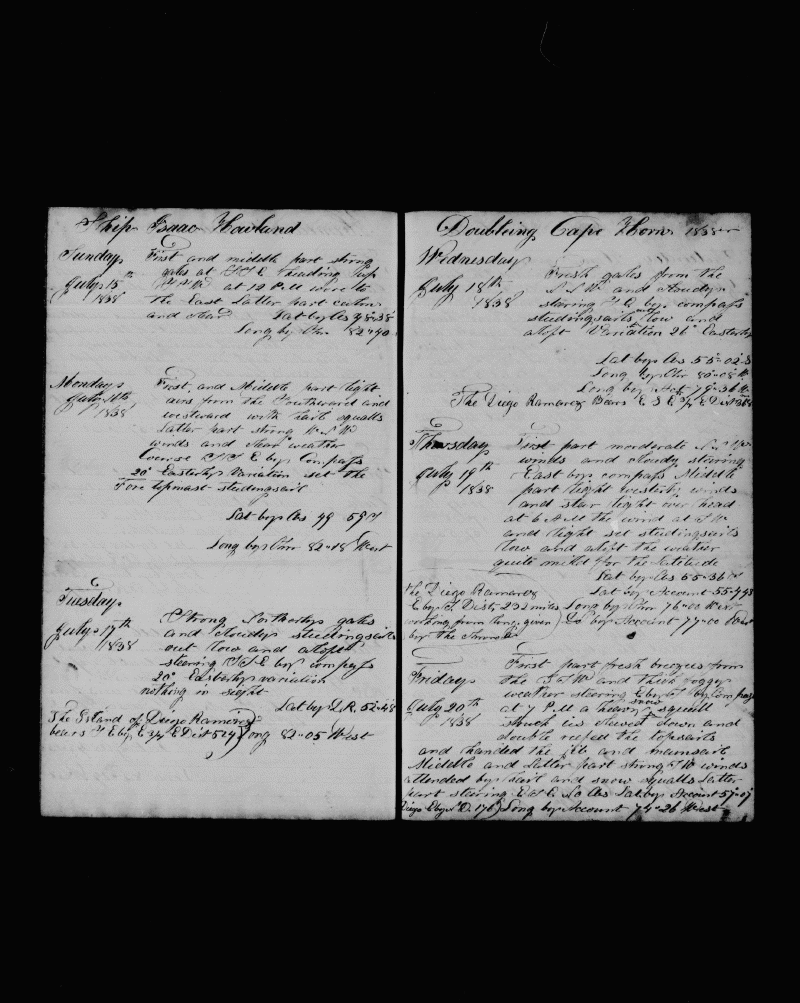 Ship Isaac Howland
Sunday First and middle part strong
July 15th gales at S S E heading up
1838 at 12 P.M wore to
the East Latter part calm
and clear Lat by Obs 48"38
Long by Chr 82"40
Monday First and Middle part light
July 16th airs from the Southward and
1838 westward with hail squalls
Latter part strong W N W
winds and clear weather
Course S S E by Compass
20° Easterly Variation set the
Fore topmast studingsail
Lat by Obs 49 59
Long by Chr 82"18 West
Tuesday Strong Northerly gales
July 17th and cloudy studingsails
1838 out low and aloft
stearing S S E by compass
20° Easterly variation
nothing in sight
Lat by D.R. 52"48
The Island of Diego Ramirez
bears E Dist 524 Long 82"05 West
Doubleing Cape Horn 1838
Wednesday Fresh gales from the
July 18th and cloudy
1838 stearing by compass
studingsails out low and
aloft Variation 26° Easterly
Lat by Obs 55"02 S
Long by Chr 80"08 W
Long by Act 79"36 W
The Diego Ramarez Bears E S E Dist
Thursday First part moderate
July 19th winds and cloudy stearing
1838 East by compass Middle
part light westerly winds
and star light over head
at 6 A M the wind at S W
and light set studingsails
low and aloft the weather
quite mild for the Latitude
Lat by Obs 55"36
The Diego Ramarez Lat by Account 55"
E by S Dist 232 miles Long by Chr 76"00 West
working from Long given by the Chron Lo by Account 77"00 West
Friday First part fresh breezes from
July 20th the S W and thick foggy
1838 weather stearing E by S by Compass
at 7 P.M a heavy snow squall
struck us clewed down and
double reefed the topsails
and handed the jib and mainsail
Middle and Latter part strong S W winds
attended by hail and snow squalls Latter
part stearing E S E No Obs Lat by Account 57"07
Diego E by N D. 176 Long by Account 74"26 West